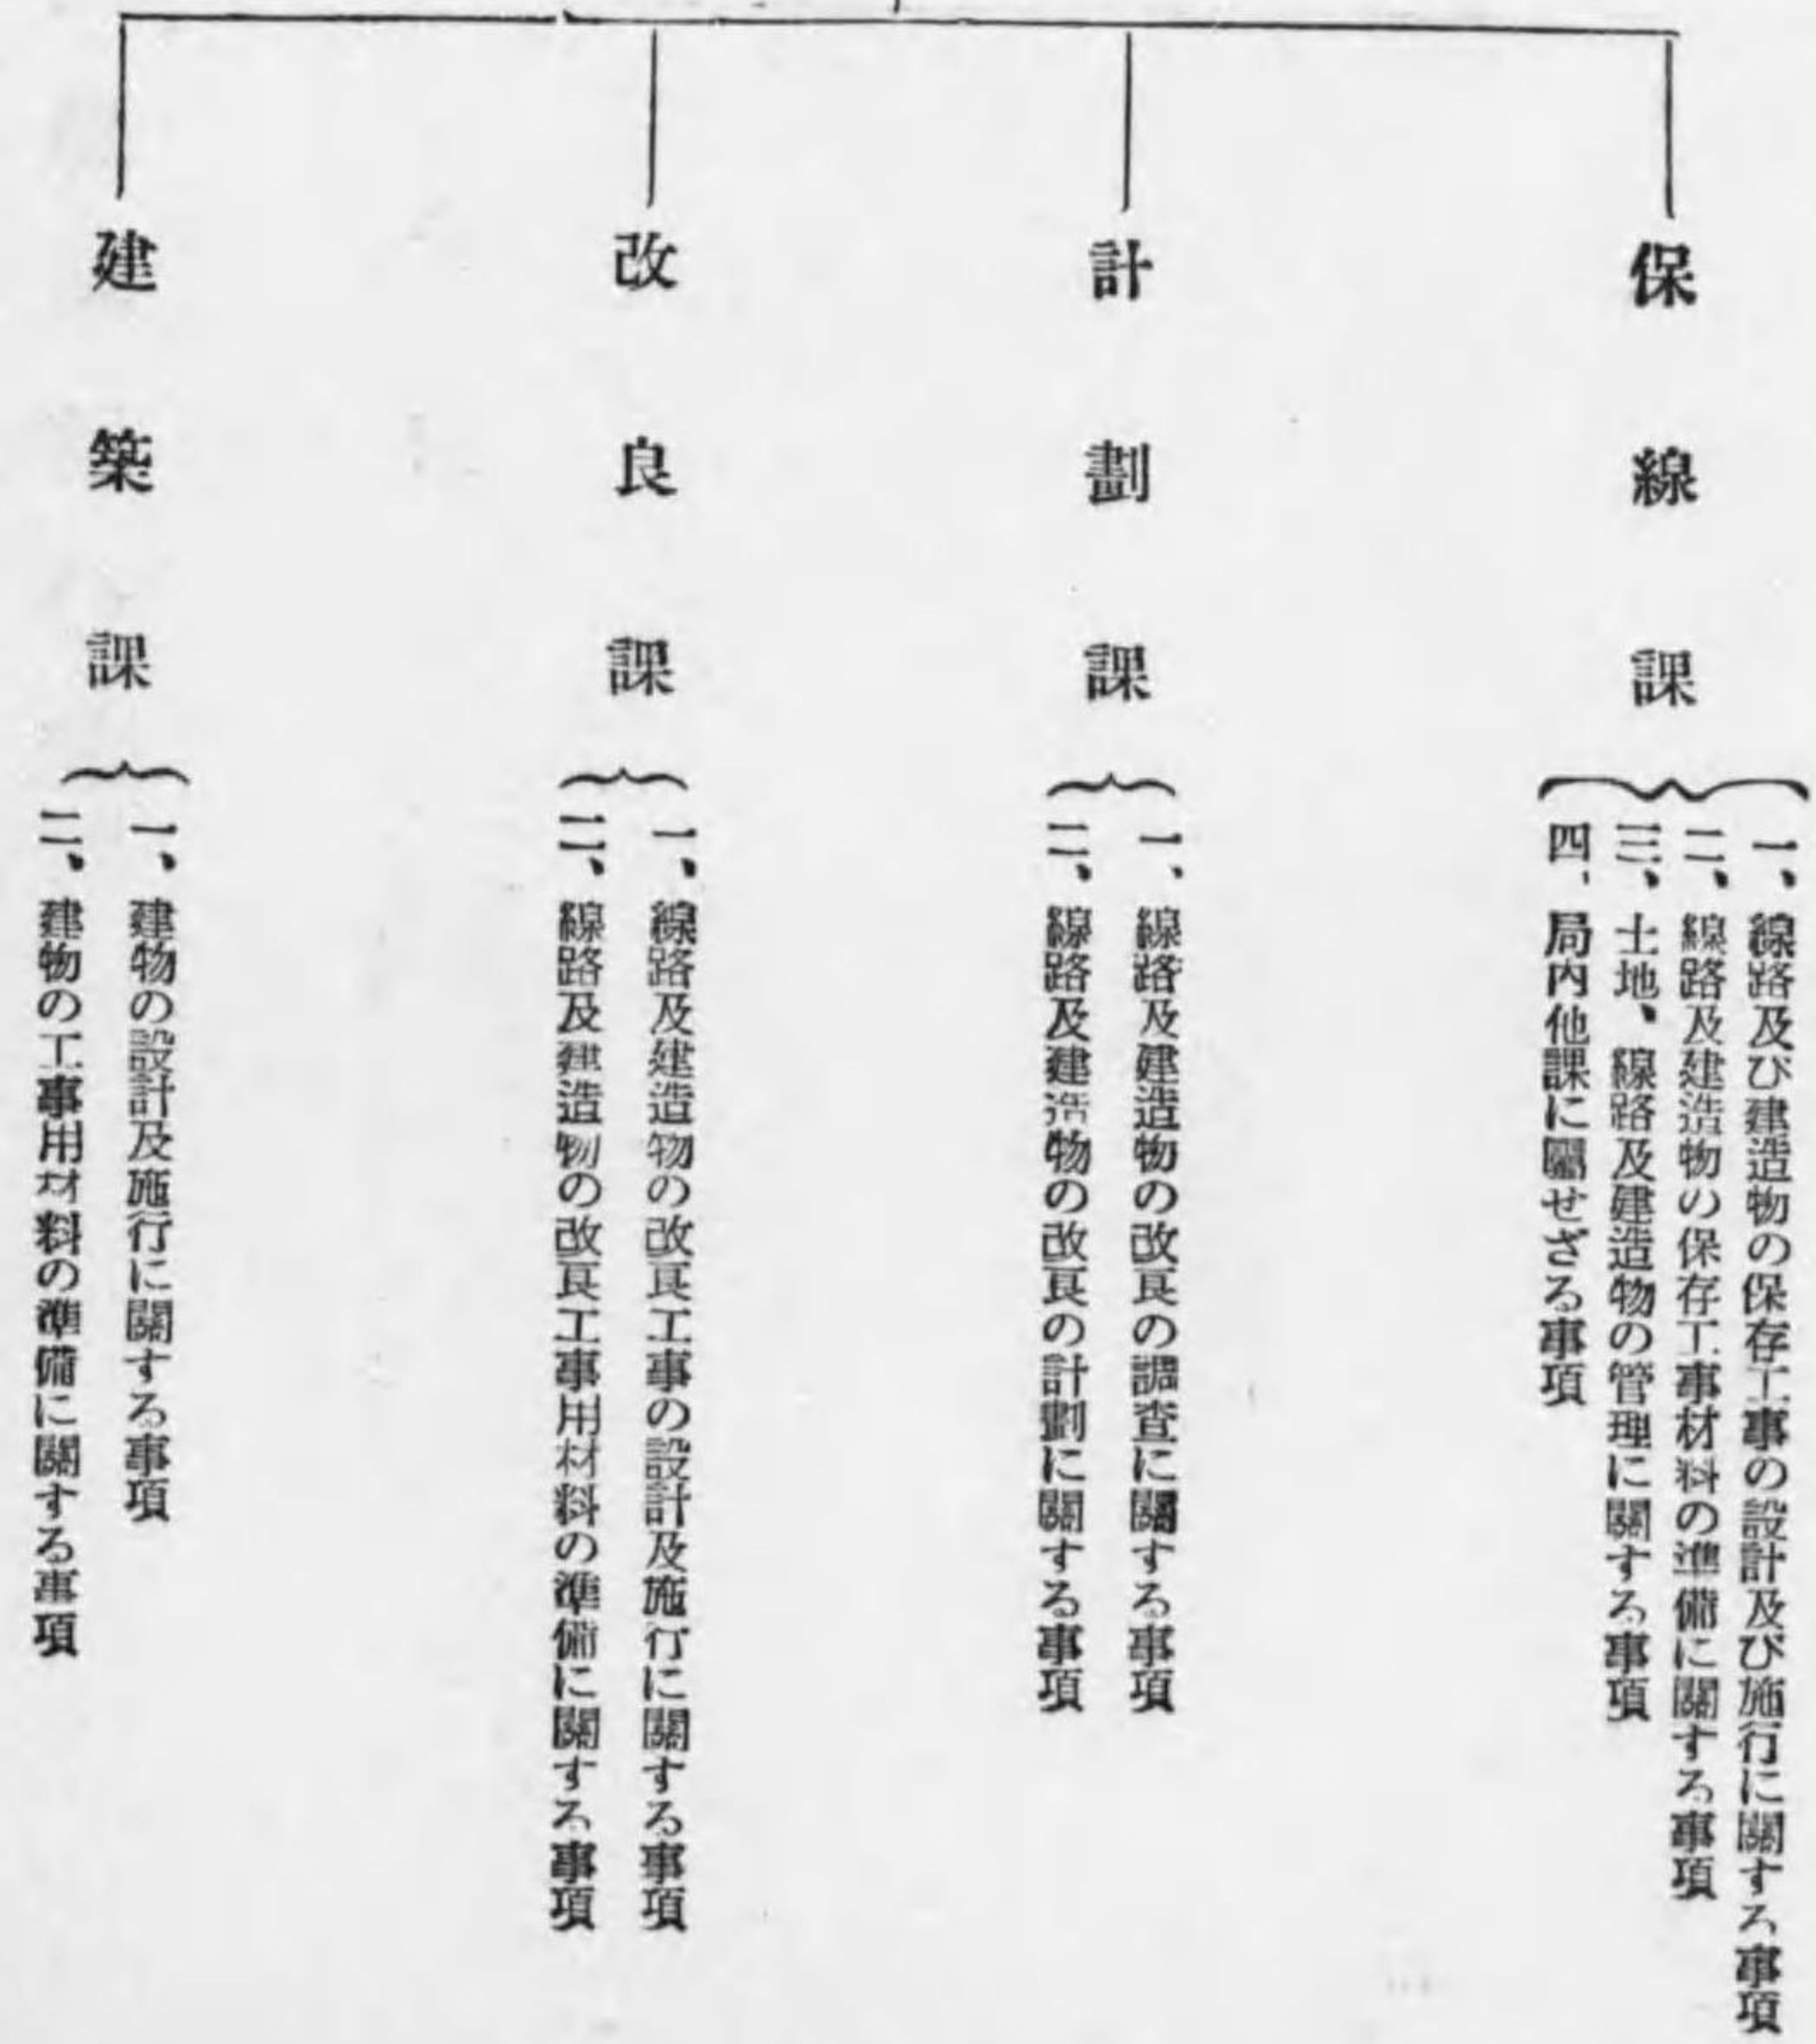 保線課
一、線路及び建造物の保存工事の設計及び施行に關する事項
二、線路及建造物の保存工事材料の準備に關する事項
三、土地、線路及建造物の管理に關する事項
四、局内他課に屬せざる事項
計劃課
一、線路及建造物の改良の調査に關する事項
二、線路及建造物の改良の計劃に關する事項
改良課
一、線路及建造物の改良工事の設計及施行に關する事項
二、線路及建造物の改良工事用材料の準備に關する事項
建築課
一、建物の設計及施行に關する事項
二、建物の工事用材料の準備に關する事項